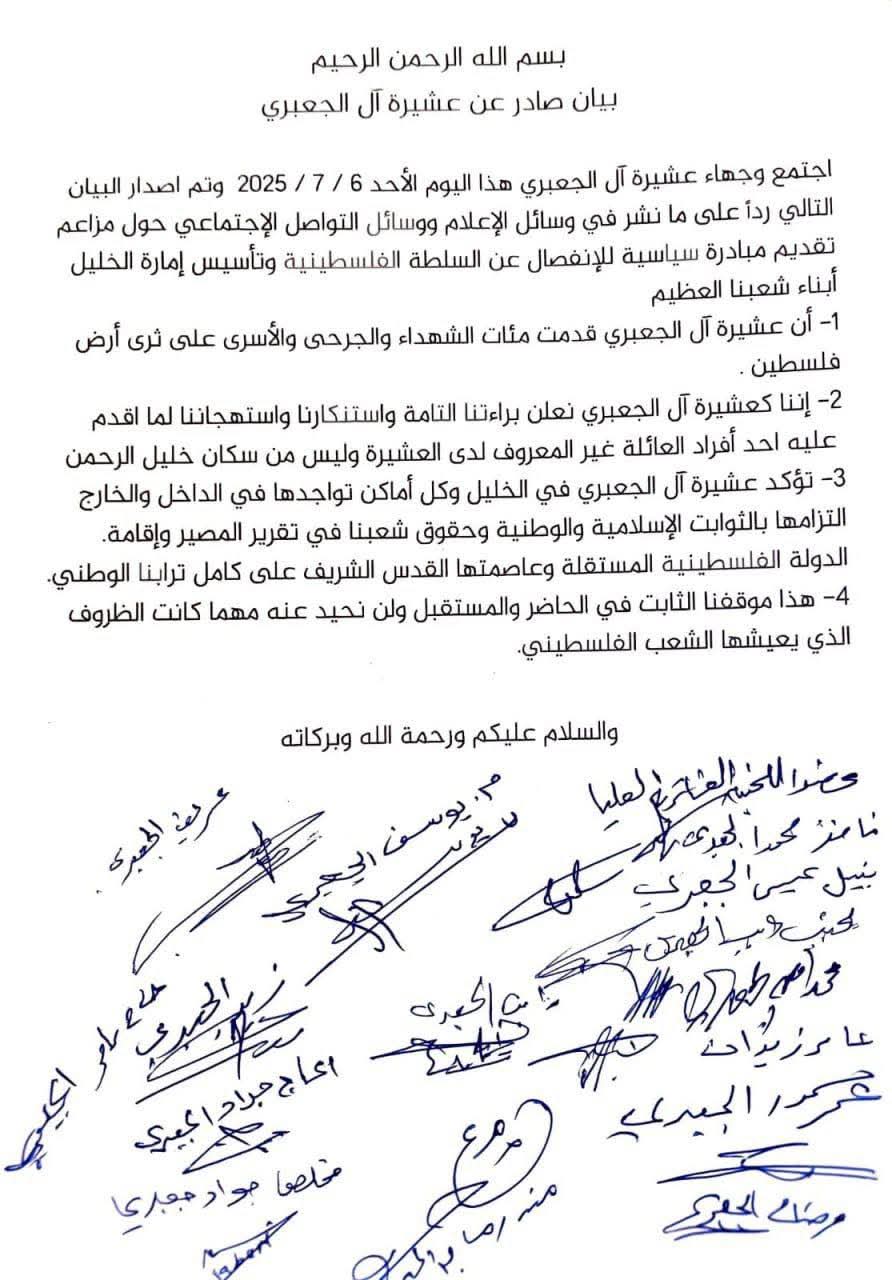 بسم الله الرحمن الرحيم
بيان صادر عن عشيرة آل الجعبري
اجتمع وجهاء عشيرة آل الجعبري هذا اليوم الأحد 6 / 7 / 2025 وتم اصدار البيان
التالي رداً على ما نشر في وسائل الإعلام ووسائل التواصل الإجتماعي حول مزاعم
تقديم مبادرة سياسية للإنفصال عن السلطة الفلسطينية وتأسيس إمارة الخليل
أبناء شعبنا العظيم
1- أن عشيرة آل الجعبري قدمت مئات الشهداء والجرحى والأسرى على ثرى أرض
فلسطين .
2- إننا كعشيرة آل الجعبري نعلن براءتنا التامة واستنكارنا واستهجاننا لما اقدم
عليه احد أفراد العائلة غير المعروف لدى العشيرة وليس من سكان خليل الرحمن
3- تؤكد عشيرة آل الجعبري في الخليل وكل أماكن تواجدها في الداخل والخارج
التزامها بالثوابت الإسلامية والوطنية وحقوق شعبنا في تقرير المصير وإقامة.
الدولة الفلسطينية المستقلة وعاصمتها القدس الشريف على كامل ترابنا الوطني.
4- هذا موقفنا الثابت في الحاضر والمستقبل ولن نحيد عنه مهما كانت الظروف
الذي يعيشها الشعب الفلسطيني.
والسلام عليكم ورحمة الله وبركاته
العليا
محمد الجعبري
نبيل عيسى الجعبري
م. يوسف الجعبري
الجعبري
عامر زيدان
الحاج جواد الجعبري
الجعبري
جواد جعبري
الجعبري